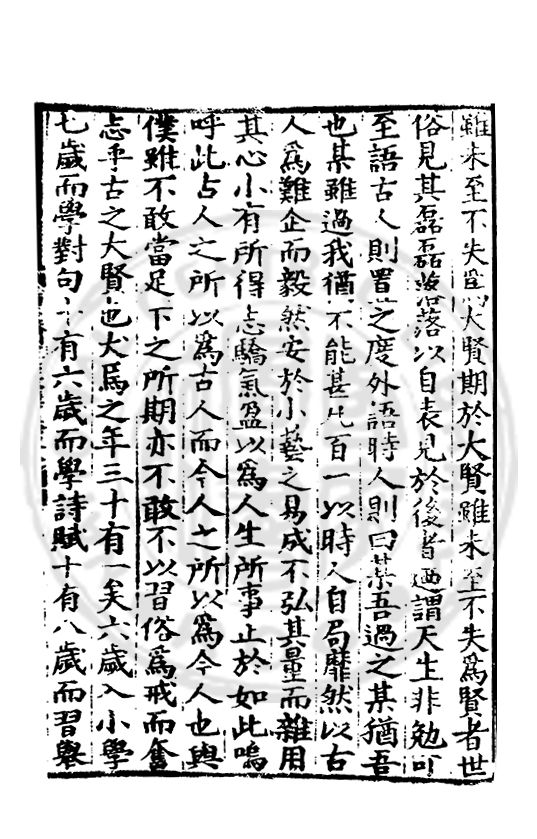 雖未至不失爲大賢期於大賢雖未至不失爲賢者世
俗見其磊磊落落以自表見於後者遡謂天生非勉可
至語古人則置之度外語時人則曰某吾過之某猶吾
也某雖過我猶不能甚凡百一以時人自局靡然以古
人爲難企而毅然安於小藝之易成不弘其量而雜用
其心小有所得志驕氣盈以爲人生所事止於如此嗚
呼此古人之所以爲古人而今人之所以爲今人也與
僕雖不敢當足下之所期亦不敢不以習俗爲戒而奮
志乎古之大賢也犬馬之年三十有一矣六歲入小學
七歲而學對句十有六歲而學詩賦十有八歲而習舉